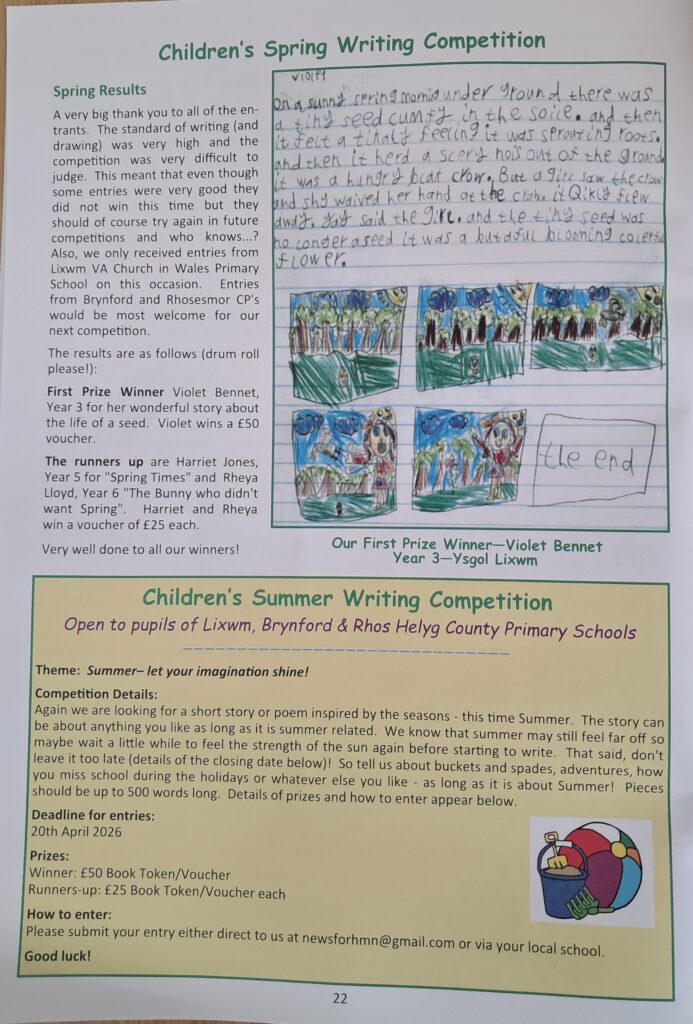 Children's Spring Writing Competition
Spring Results
A very big thank you to all of the en-
trants. The standard of writing (and
drawing) was very high and the
competition was very difficult to
judge. This meant that even though
some entries were very good they
did not win this time but they
should of course try again in future
competitions and who knows...?
Also, we only received entries from
Lixwm VA Church in Wales Primary
School on this occasion. Entries
from Brynford and Rhosesmor CP's
would be most welcome for our
next competition.
The results are as follows (drum roll
please!):
First Prize Winner Violet Bennet,
Year 3 for her wonderful story about
the life of a seed. Violet wins a £50
voucher.
The runners up are Harriet Jones,
Year 5 for "Spring Times" and Rheya
Lloyd, Year 6 "The Bunny who didn't
want Spring". Harriet and Rheya
win a voucher of £25 each.
Very well done to all our winners!
Violet
on a sunny spring morning under ground there was
a tiny seed cumfy in the soile. and then
it felt a tikaly feeling it was sprouting roots.
and then it herd a scery nois out of the ground
it was a hungry blat crow. But a girl saw the crow
and shy waived her hand at the crow. it Qikly flew
away. yay said the girl. and the tiny seed was
no longer a seed it was a butaful blooming colerful
flower.
the end
Our First Prize Winner—Violet Bennet
Year 3—Ysgol Lixwm
Children's Summer Writing Competition
Open to pupils of Lixwm, Brynford & Rhos Helyg County Primary Schools
Theme: Summer– let your imagination shine!
Competition Details:
Again we are looking for a short story or poem inspired by the seasons - this time Summer. The story can
be about anything you like as long as it is summer related. We know that summer may still feel far off so
maybe wait a little while to feel the strength of the sun again before starting to write. That said, don't
leave it too late (details of the closing date below)! So tell us about buckets and spades, adventures, how
you miss school during the holidays or whatever else you like - as long as it is about Summer! Pieces
should be up to 500 words long. Details of prizes and how to enter appear below.
Deadline for entries:
20th April 2026
Prizes:
Winner: £50 Book Token/Voucher
Runners-up: £25 Book Token/Voucher each
How to enter:
Please submit your entry either direct to us at newsforhmn@gmail.com or via your local school.
Good luck!
22